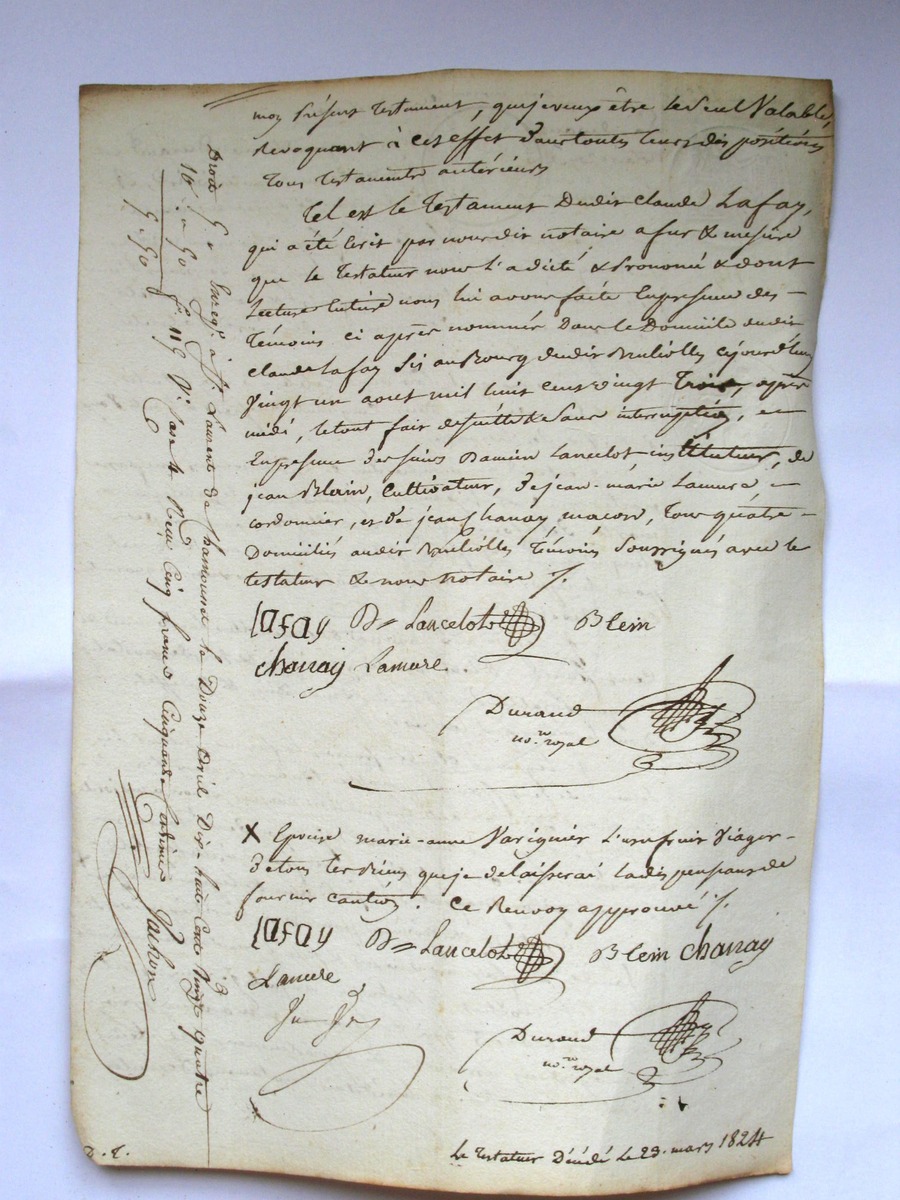 mon présent testament, que je veux être le seul valable,
Revoquant à cet effet dans toutes leurs dispositions
tous testaments antérieurs
Tel est le testament dudit Claude Lafay,
qui a été écrit par nous dit notaire a fur & mesure
que le testateur nous l'a dicté & prononcé & dont
lecture entière nous lui avons faite En presence des
témoins ci après nommés dans le Domicile dudit
Claude Lafay sis au Bourg dudit cejourd'hui
vingt un aout mil huit cent vingt trois, après
midi, le tout fait de suitte & sans interruption, et
En presence des sieurs Damien Lancelot instituteur, de
jean Blein, Cultivateur, de jean-marie Lamure,
cordonnier, et de jean Chanay macon, tous quatre
Domiciliés audit témoins soussignés avec le
testateur & nous notaire /.
Lafay D Lancelot Blein
chanay Lamure
Durand
no.re royal
X Epouse marie-anne Variquier L'usufruit viager
de tous les biens que je delaisserai la dispensant de
fournir caution. Ce Renvoy approuvé /.
Lafay D Lancelot Blein chanay
Lamure
Durand
no.re royal
Le testateur Décédé Le 29. mars 1824
Droit 5 "
10.e " 50
5 . 50
Enreg.é à St Laurent de Chamousset le Douze avril Dix-huit Cent Vingt quatre
f.o 119 V.o Case 4 Reçu Cinq francs Cinquante Centimes
Pachon
D. E.